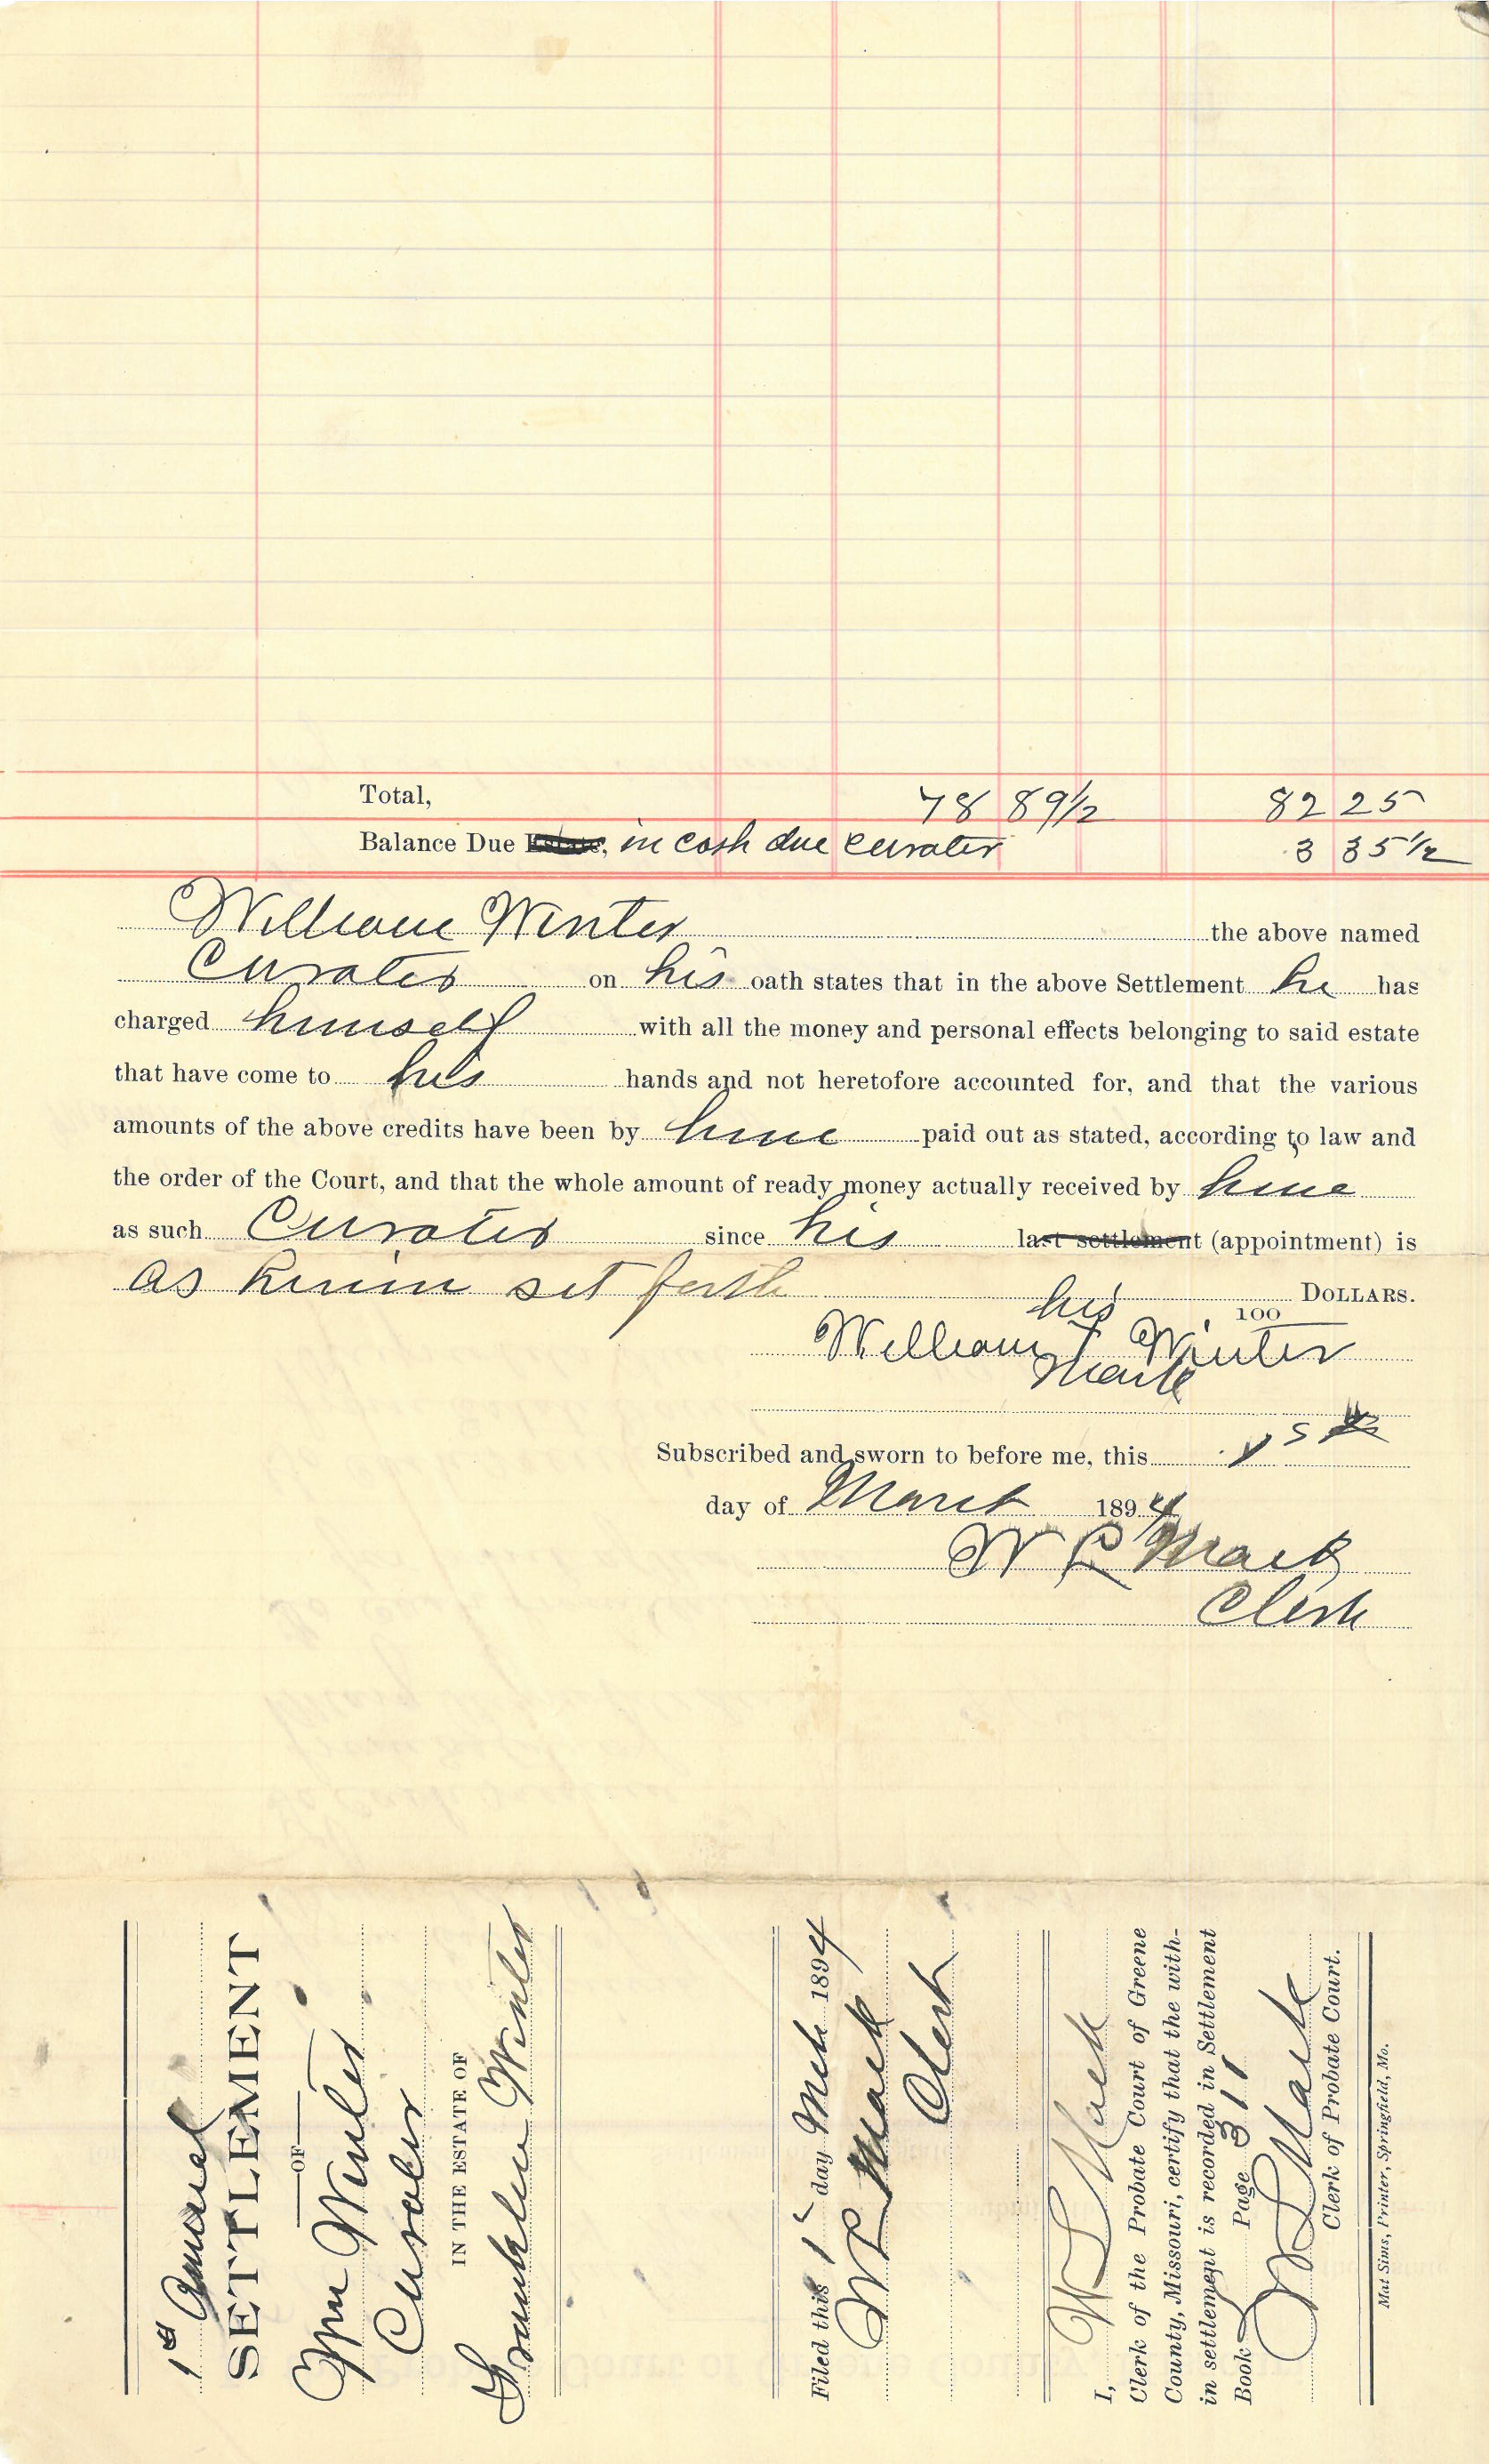 Total, 78 89 1/2 82 25
Balance Due Estate, in cash due curator 3 35 1/2
William Winter the above named
Curator on his oath states that in the above Settlement he has
charged himself with all the money and personal effects belonging to said estate
that have come to his hands and not heretofore accounted for, and that the various
amounts of the above credits have been by him paid out as stated, according to law and
the order of the Court, and that the whole amount of ready money actually received by him
as such Curator since his last settlement (appointment) is
as herein set forth DOLLARS.
his 100
William + Winter
Mark
Subscribed and sworn to before me, this
day of March 1894
W L Mack
Clerk
1st Annual
SETTLEMENT
OF
Wm Winter
Curator
IN THE ESTATE OF
Franklin Winter
Filed this 1" day Mch 1894
W L Mack
Clerk
I, W L Mack
Clerk of the Probate Court of Greene
County, Missouri, certify that the with-
in settlement is recorded in Settlement
Book Page 311
W L Mack
Clerk of Probate Court.
Mat Sims, Printer, Springfield, Mo.